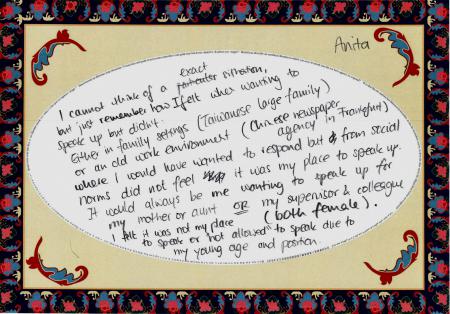 Anita
I cannot think of a particular exact situation,
but just remember how I felt when wanting to
speak up but didn't.
Either in family settings (Taiwanese large family)
or an old work environment (Chinese newspaper agency in Frankfurt)
where I would have wanted to respond but from social
norms did not feel it was my place to speak up.
It would always be me wanting to speak up for
my mother or aunt OR my supervisor & colleague
(both female).
I felt it was not my place
to speak or "not allowed" to speak due to
my young age and position